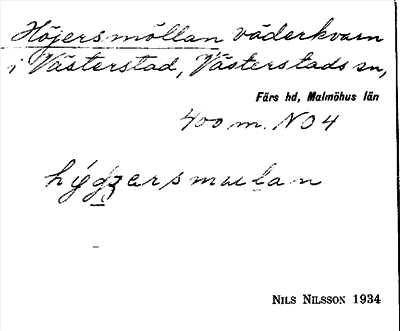 Höjersmöllan väderkvarn
i Västerstad, Västerstads sn,
Färs hd, Malmöhus län
400 m. NO 4
NILS NILSSON 1934